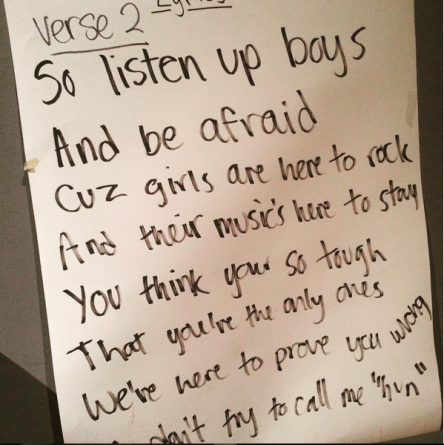 Lyrics
Verse 2
So listen up boys
And be afraid
Cuz girls are here to rock
And their music's here to stay
You think your so tough
That you're the only ones
We're here to prove you wrong
don't try to call me "hun"